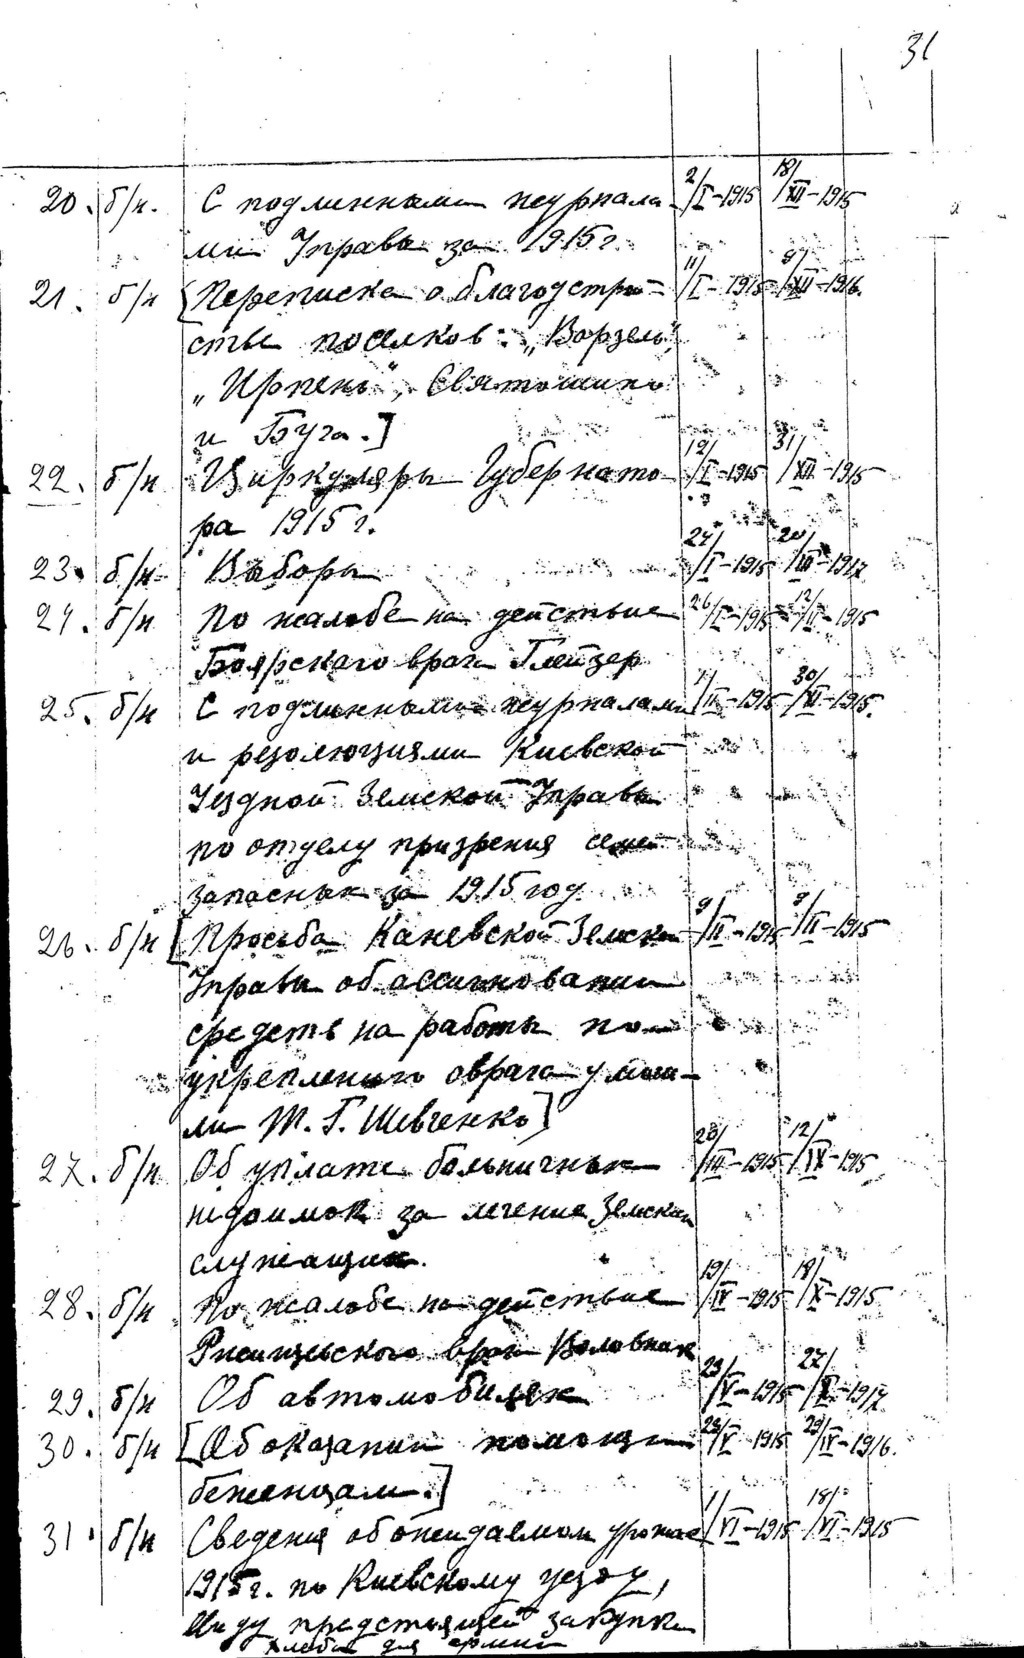 31
20. б/н. С подлинными журнала- 2/I-1915 18/XII-1915
ми Управы за 1915 г.
21. б/н [Переписка о благоустрой- 11/I-1915 9/XII-1916.
стве поселков: „Ворзель",
„Ирпень", Святошино
и Буча.]
22. б/н Циркуляры Губернато- 12/I-1915 31/XII-1915
ра 1915 г.
23. б/н Выборы 24/I-1915 20/III-1917
24. б/н По жалобе на действие 26/I-1915 12/II-1915
Боярского врача Глейзер
25. б/н С подлинными журналами 1/II-1915 30/XI-1915.
и резолюциями Киевской
Уездной Земской Управы
по отделу призрения семей
запасных за 1915 год.
26. б/н [Просьба Каневской Земской 9/II-1915 9/II-1915
Управы об ассигновании
средств на работы по
укреплению оврага у моги-
лы Т. Г. Шевченко]
27. б/н Об уплате больничных 20/III-1915 12/IX-1915
недоимок за лечение Земских
служащих.
28. б/н По жалобе на действие 19/IV-1915 18/X-1915
Ржищевского врача
29. б/н Об автомобилях 23/V-1915 27/X-1917
30. б/н [Об оказании помощи 28/V-1915 29/IV-1916.
беженцам.]
31. б/н Сведения об ожидаемом урожае 1/VI-1915 18/VI-1915
1915 г. по Киевскому уезду,
ввиду предстоящей закупки
хлеба для армии